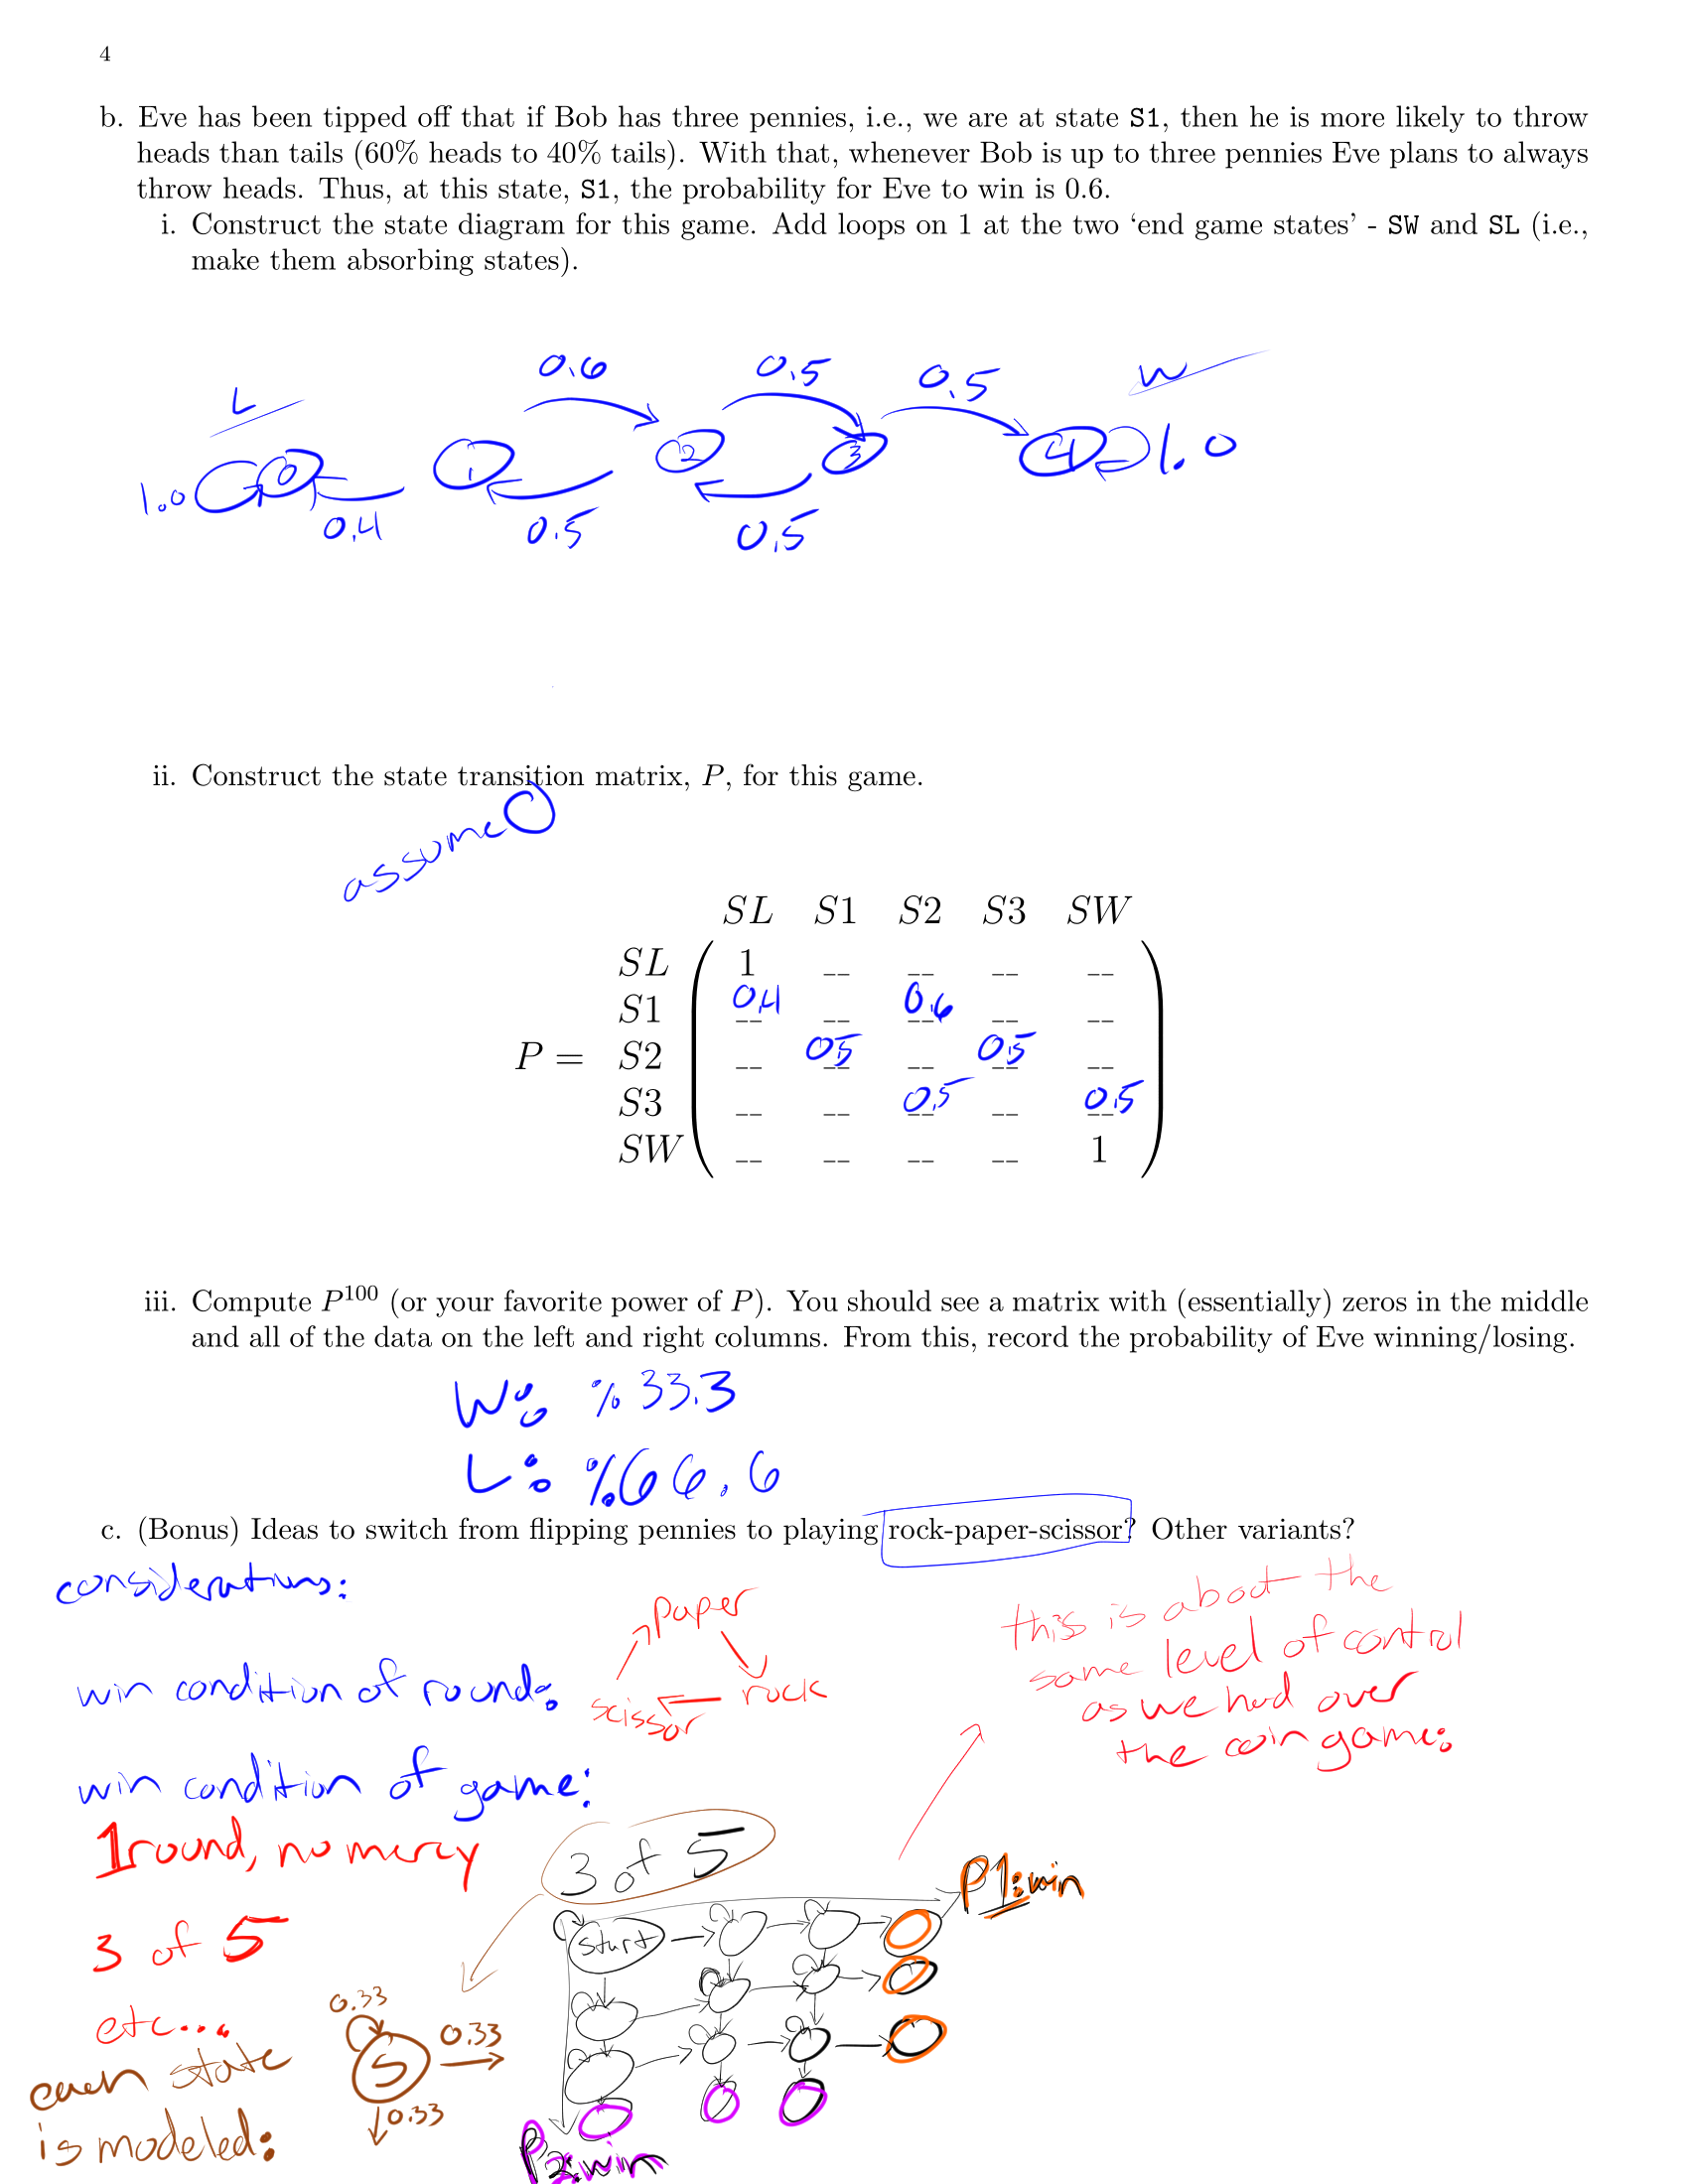 4
b. Eve has been tipped off that if Bob has three pennies, i.e., we are at state S1, then he is more likely to throw
heads than tails (60% heads to 40% tails). With that, whenever Bob is up to three pennies Eve plans to always
throw heads. Thus, at this state, S1, the probability for Eve to win is 0.6.
i. Construct the state diagram for this game. Add loops on 1 at the two ‘end game states’ - SW and SL (i.e.,
make them absorbing states).
L 0.6 0.5 0.5 W
1.0 0 1 2 3 4 1.0
0.4 0.5 0.5
ii. Construct the state transition matrix, P, for this game.
assume 0
SL S1 S2 S3 SW
SL 1 __ __ __ __
S1 0.4 __ 0.6 __ __
P = S2 __ 0.5 __ 0.5 __
S3 __ __ 0.5 __ 0.5
SW __ __ __ __ 1
iii. Compute P^100 (or your favorite power of P). You should see a matrix with (essentially) zeros in the middle
and all of the data on the left and right columns. From this, record the probability of Eve winning/losing.
W: % 33.3
L: % 66.6
c. (Bonus) Ideas to switch from flipping pennies to playing rock-paper-scissor? Other variants?
considerations:
win condition of round:
paper
scissor rock
this is about the
same level of control
as we had over
the coin game:
win condition of game:
1 round, no mercy
3 of 5
etc...
3 of 5
P1:win
start
each state
is modeled:
0.33
S 0.33
0.33
P2:win